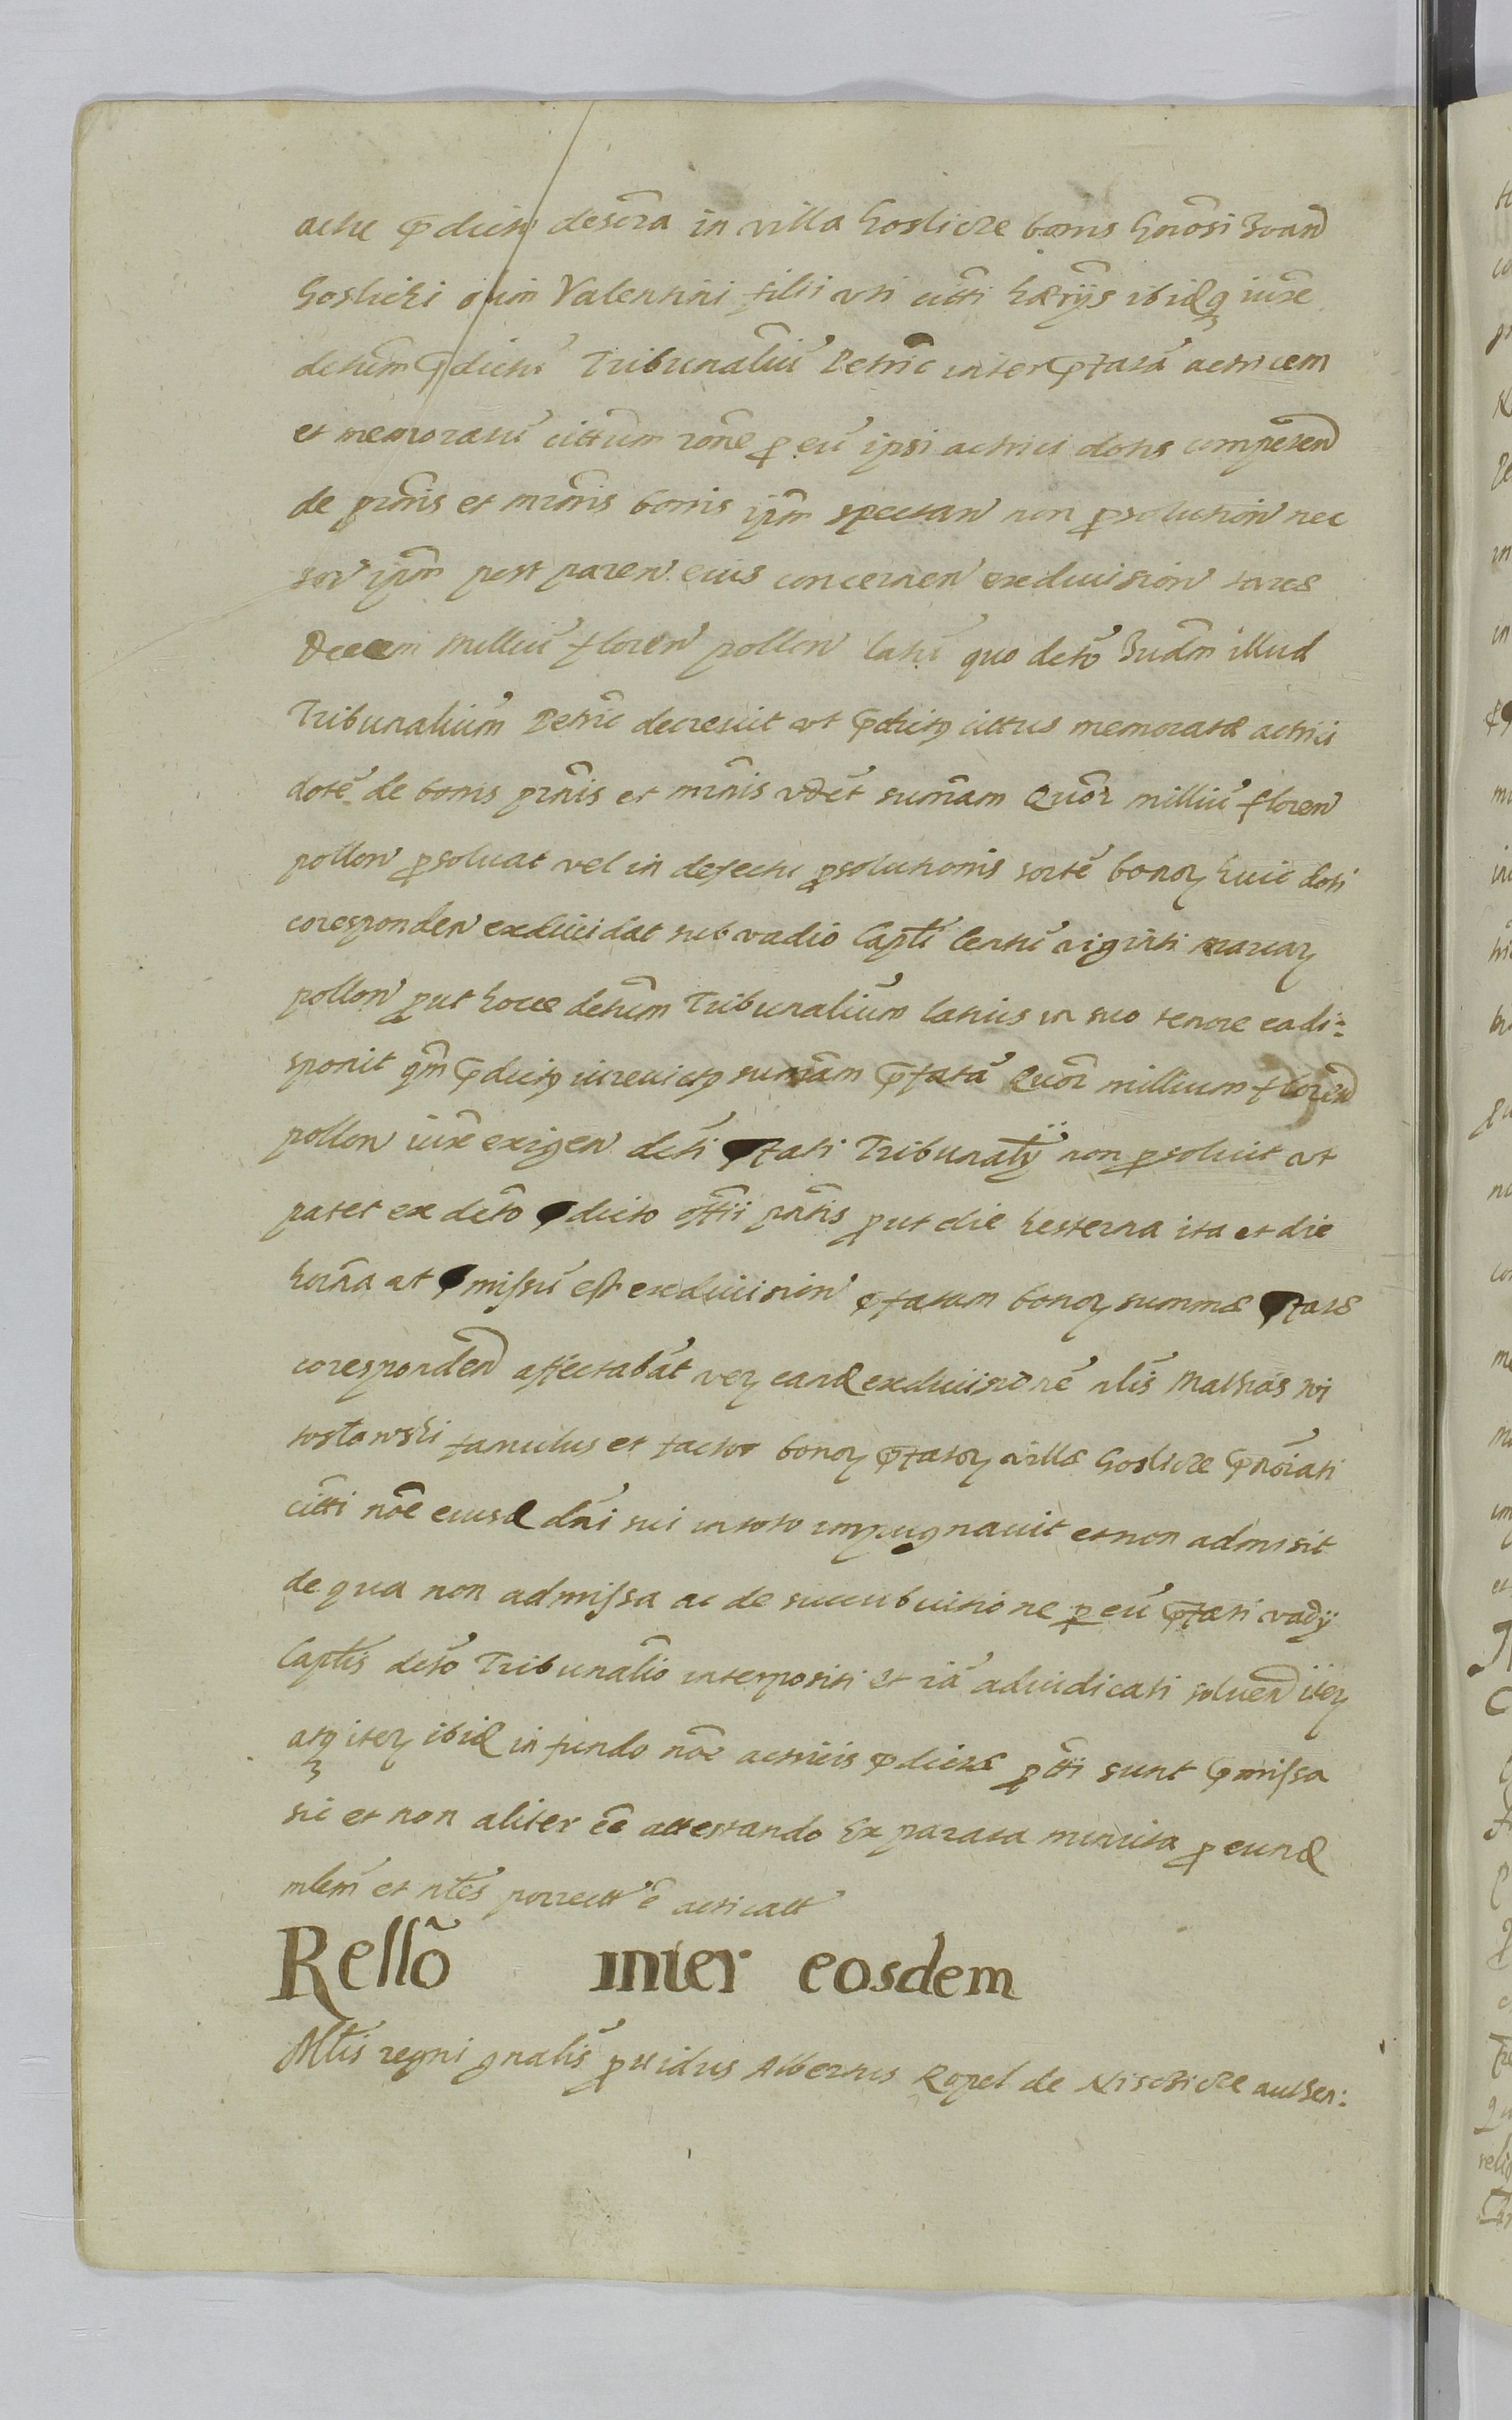 actu p̃dictu descēn̄a in villa Goslicze bonis Gnōsi Joan̄
Goslicki olim Valentini filii uti citti hærẽys ibiq̃ iux̃e
detum p̃dictũ Tribunalium Petric̃ inter p̃fatã actricem
et memoratũ cittum rōne ꝑ eũ ipsi actrici dotis competen̄
de pr̃nis et mr̃nis bonis ip̃m spectan̄ non ꝑsolution̄ nec
sor̄ ip̃m post paren̄ eius concernen̄ exdivision̄ taxæ
Decem milliũ floren̄ pollon̄ latũ quo detõ Judm̃ illud
Tribunalium Petric̃ decrevit ut p̃dictꝰ cittus memoratæ actrici
dotẽ de bonis pr̃nis et mr̃nis vdet̃ sum̃am Quõr milliũ floren̄
pollon̄ ꝑsoluat vel in defectu ꝑsolutionis sortẽ bonoꝝ huic doti
coresponden̄ exdiuidat sub vadio Captĩ Centũ viginti marcaꝝ
pollon̄ ꝓut hocce detum Tribunalium latius in suo tenore ea di:
sponit qm̃ p̃dictꝰ iureuictꝰ sum̃am p̃fatã Quõr millium floren̄
pollon̄ iux̃e exigen̄ deti p̃fati Tribunalỹ non ꝑsoluit ut
patet ex detõ p̃dicto offĩi pñtis ꝓut die hesterna ita et die
horñna at p̃missũ est exdiuision̄ p̃fatam bonoꝝ summæ p̃fatæ
coresponden̄ affectabãt veꝝ eand̃ exdiuisionẽ nl̃is Mathias Wi
sostowski famulus et factor bonoꝝ p̃fatoꝝ villæ Goslicze p̃nõiati
citti nõe eiusd̃ dñi sui in toto impugnauit et non admisit
de qua non admissa ac de succubuitione ꝑ eũ p̃fati vadỹ
Captis̃ detõ Tribunalio interpositi et iã adiudicati soluen̄ iteꝝ
atq̃ iteꝝ ibid̃ in fundo nõe actricis p̃dictæ ꝓtti sunt p̃missa
sic et non aliter eẽ attestando Ex parata minuta ꝑ eund̃
mlem̃ et nles̃ porrectt̃ẽ acticatt
Rellõ inter eosdem
Mtis̃ regni gñalis̃ ꝓuidus Albertus Kopel de Nisczicze authen: